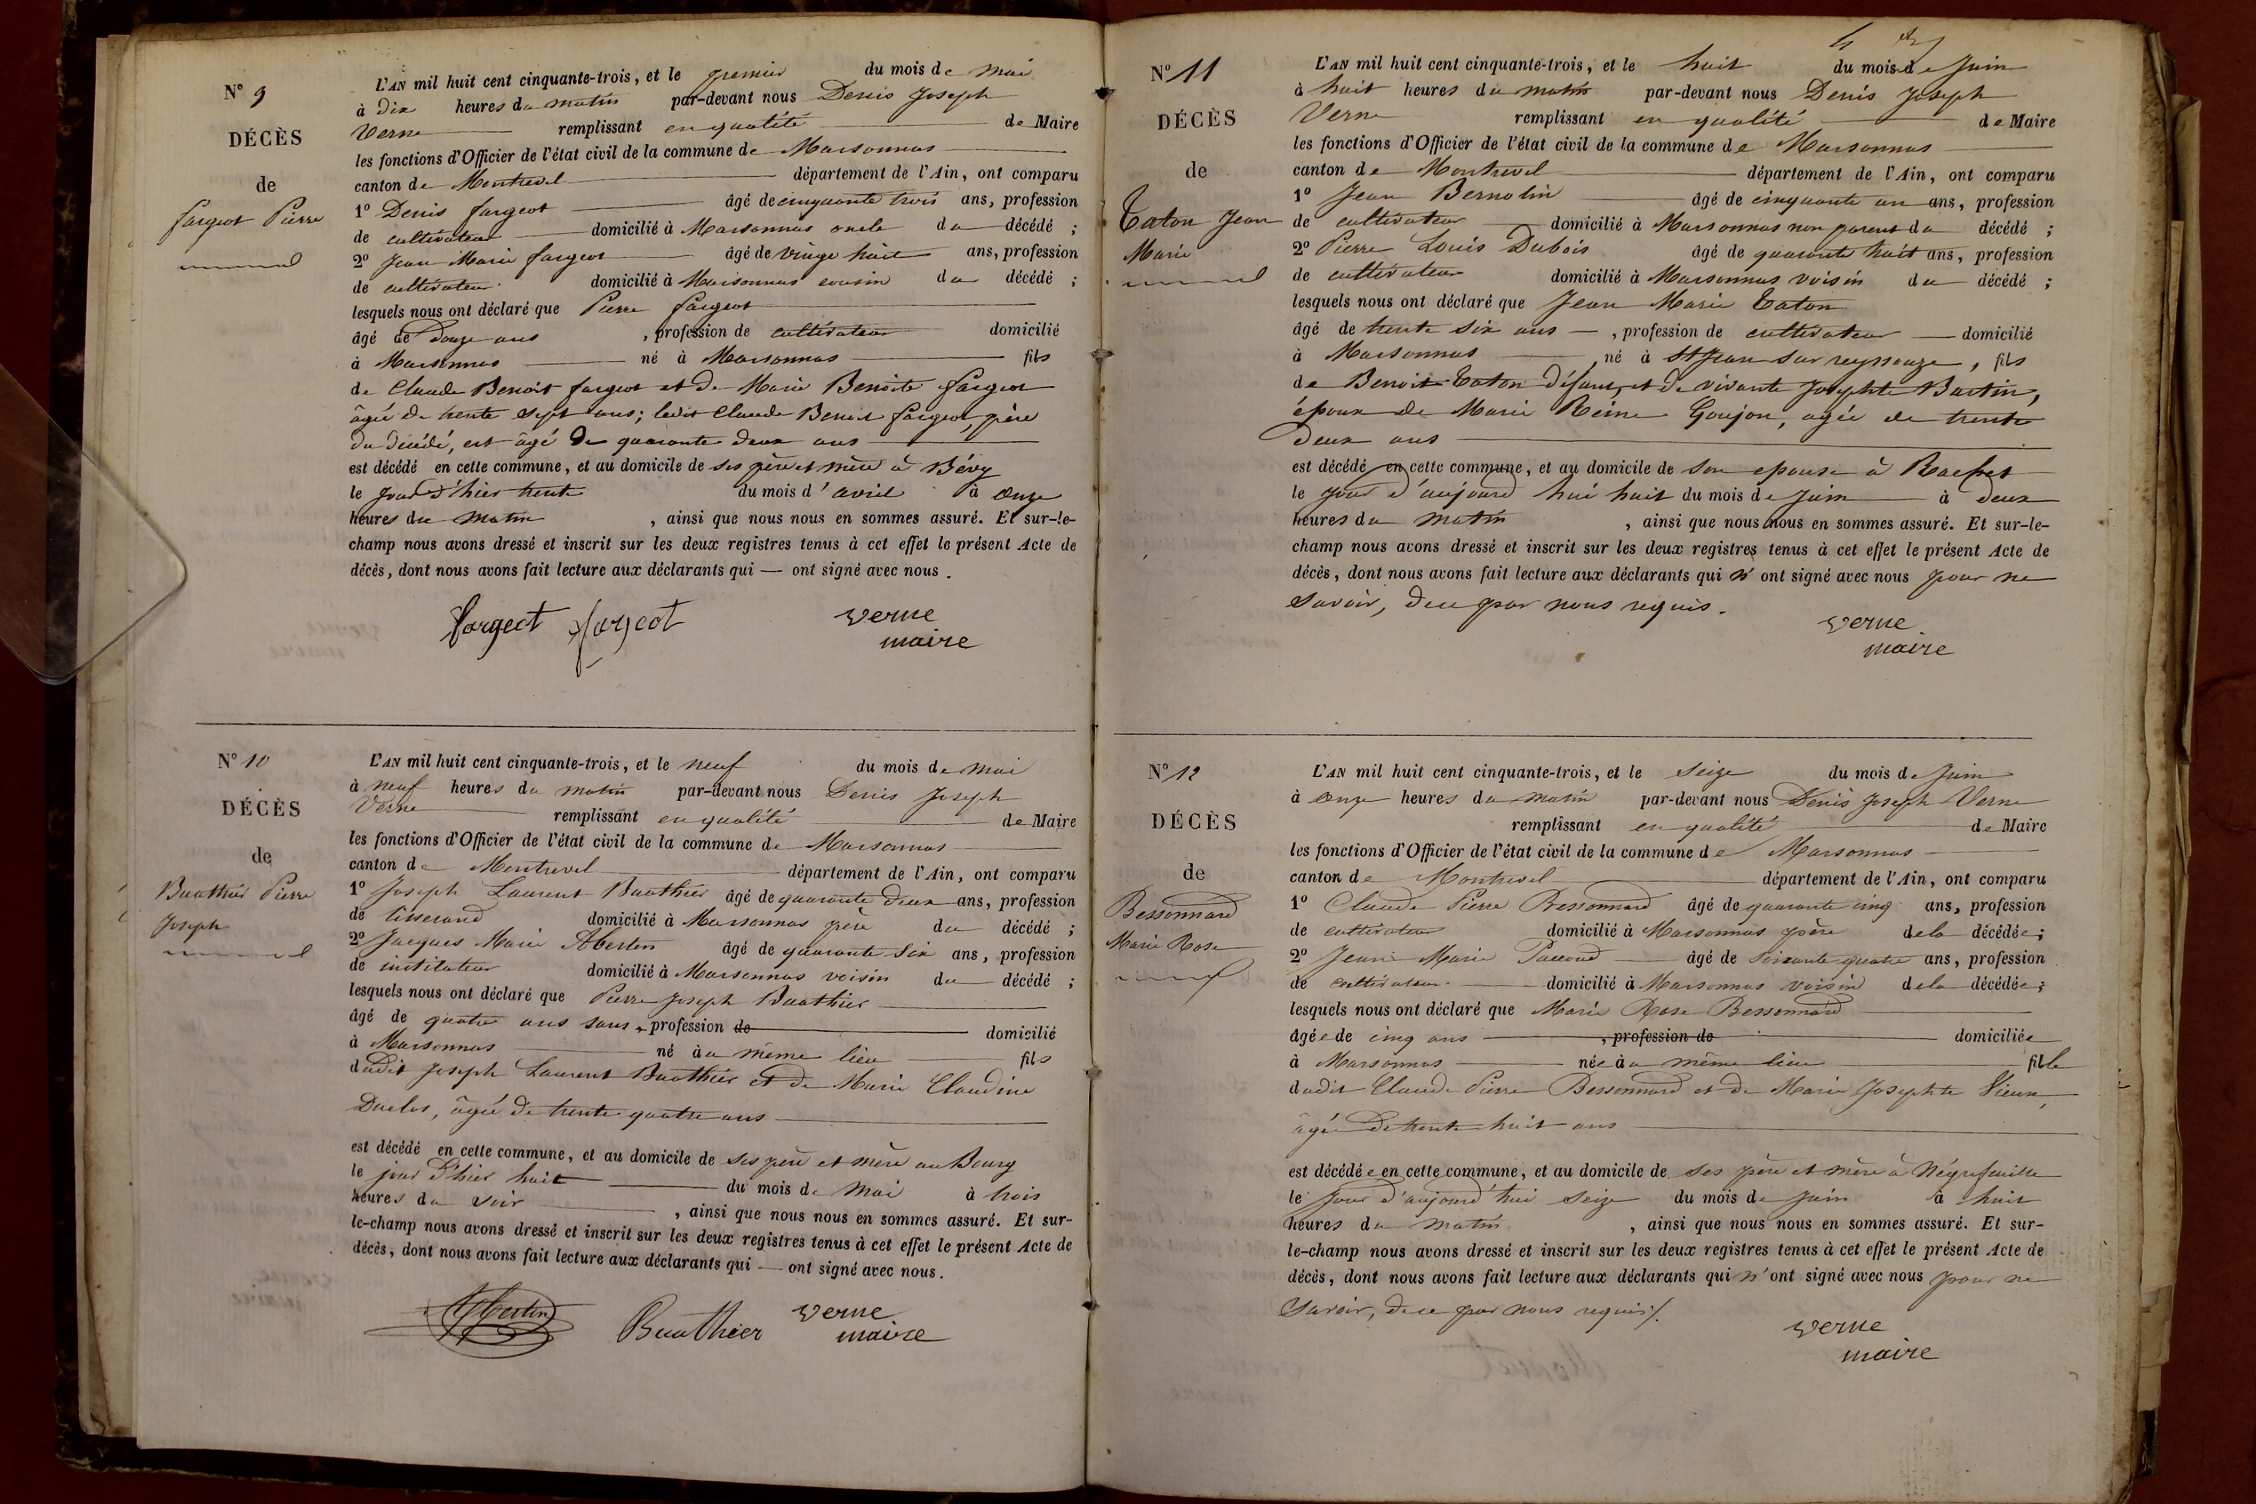 N° 9
DÉCÈS
de
fargeot Pierre
L'AN mil huit cent cinquante-trois, et le premier du mois de mai
à dix heures du matin par-devant nous Denis Joseph
Verne remplissant en qualité de Maire
les fonctions d'Officier de l'état civil de la commune de Marsonnas
canton de Montrevel département de l'Ain, ont comparu
1° Denis fargeot âgé de cinquante trois ans, profession
de cultivateur domicilié à Marsonnas oncle du décédé ;
2° Jean Marie fargeot âgé de vingt huit ans, profession
de cultivateur domicilié à Marsonnas cousin du décédé ;
lesquels nous ont déclaré que Pierre fargeot
âgé de douze ans , profession de cultivateur domicilié
à Marsonnas né à Marsonnas fils
de Claude Benoit fargeot et de Marie Benoite fargeot
âgée de trente sept ans; ledit Claude Benoit fargeot, père
du décédé, est âgé de quarante deux ans
est décédé en cette commune, et au domicile de ses père et mère à Bévy
le jour d'hier trente du mois d'avril à onze
heures du matin , ainsi que nous nous en sommes assuré. Et sur-le-
champ nous avons dressé et inscrit sur les deux registres tenus à cet effet le présent Acte de
décès, dont nous avons fait lecture aux déclarants qui — ont signé avec nous.
fargeot fargeot verne
maire
N° 10
DÉCÈS
de
Buathier Pierre
Joseph
L'AN mil huit cent cinquante-trois, et le neuf du mois de mai
à neuf heures du matin par-devant nous Denis Joseph
Verne remplissant en qualité de Maire
les fonctions d'Officier de l'état civil de la commune de Marsonnas
canton de Montrevel département de l'Ain, ont comparu
1° Joseph Laurent Buathier âgé de quarante deux ans, profession
de tisserand domicilié à Marsonnas père du décédé ;
2° Jacques Marie Aberlin âgé de quarante six ans, profession
de instituteur domicilié à Marsonnas voisin du décédé ;
lesquels nous ont déclaré que Pierre Joseph Buathier
âgé de quatre ans sans profession de domicilié
à Marsonnas né au même lieu fils
dudit Joseph Laurent Buathier et de Marie Claudine
Duclos, âgée de trente quatre ans
est décédé en cette commune, et au domicile de ses père et mère au Bourg
le jour d'hier huit du mois de Mai à trois
heures du soir , ainsi que nous nous en sommes assuré. Et sur-
le-champ nous avons dressé et inscrit sur les deux registres tenus à cet effet le présent Acte de
décès, dont nous avons fait lecture aux déclarants qui — ont signé avec nous.
Aberlin Buathier verne
maire
N° 11
DÉCÈS
de
Caton Jean
Marie
L'AN mil huit cent cinquante-trois, et le huit du mois de Juin
à huit heures du matin par-devant nous Denis Joseph
Verne remplissant en qualité de Maire
les fonctions d'Officier de l'état civil de la commune de Marsonnas
canton de Montrevel département de l'Ain, ont comparu
1° Jean Bernolin âgé de cinquante un ans, profession
de cultivateur domicilié à Marsonnas non parent du décédé ;
2° Pierre Louis Dubois âgé de quarante huit ans, profession
de cultivateur domicilié à Marsonnas voisin du décédé ;
lesquels nous ont déclaré que Jean Marie Caton
âgé de trente six ans , profession de cultivateur domicilié
à Marsonnas né à St Jean sur reyssouze, fils
de Benoit Caton défunt, et de vivante Josephte Bartin,
époux de Marie Reine Goujon, agée de trente
deux ans
est décédé en cette commune, et au domicile de son epouse à
le jour d'aujourd'hui huit du mois de Juin à deux
heures du matin , ainsi que nous nous en sommes assuré. Et sur-le-
champ nous avons dressé et inscrit sur les deux registres tenus à cet effet le présent Acte de
décès, dont nous avons fait lecture aux déclarants qui n'ont signé avec nous pour ne
savoir, de ce par nous requis.
verne
maire
N° 12
DÉCÈS
de
Bessonnard
Marie Rose
L'AN mil huit cent cinquante-trois, et le seize du mois de Juin
à onze heures du matin par-devant nous Denis Joseph Verne
remplissant en qualité de Maire
les fonctions d'Officier de l'état civil de la commune de Marsonnas
canton de Montrevel département de l'Ain, ont comparu
1° Claude Pierre Bessonnard âgé de quarante cinq ans, profession
de cultivateur domicilié à Marsonnas père de la décédée ;
2° Jean Marie Paccoud âgé de soixante quatre ans, profession
de cultivateur domicilié à Marsonnas voisin de la décédée ;
lesquels nous ont déclaré que Marie Rose Bessonnard
âgée de cinq ans , profession de domiciliée
à Marsonnas née au même lieu fille
dudit Claude Pierre Bessonnard et de Marie Josephte Vieux,
âgée de trente huit ans
est décédée en cette commune, et au domicile de ses père et mère à Négrefeuille
le jour d'aujourd'hui seize du mois de Juin à huit
heures du matin , ainsi que nous nous en sommes assuré. Et sur-
le-champ nous avons dressé et inscrit sur les deux registres tenus à cet effet le présent Acte de
décès, dont nous avons fait lecture aux déclarants qui n'ont signé avec nous pour ne
savoir, de ce par nous requis.
verne
maire